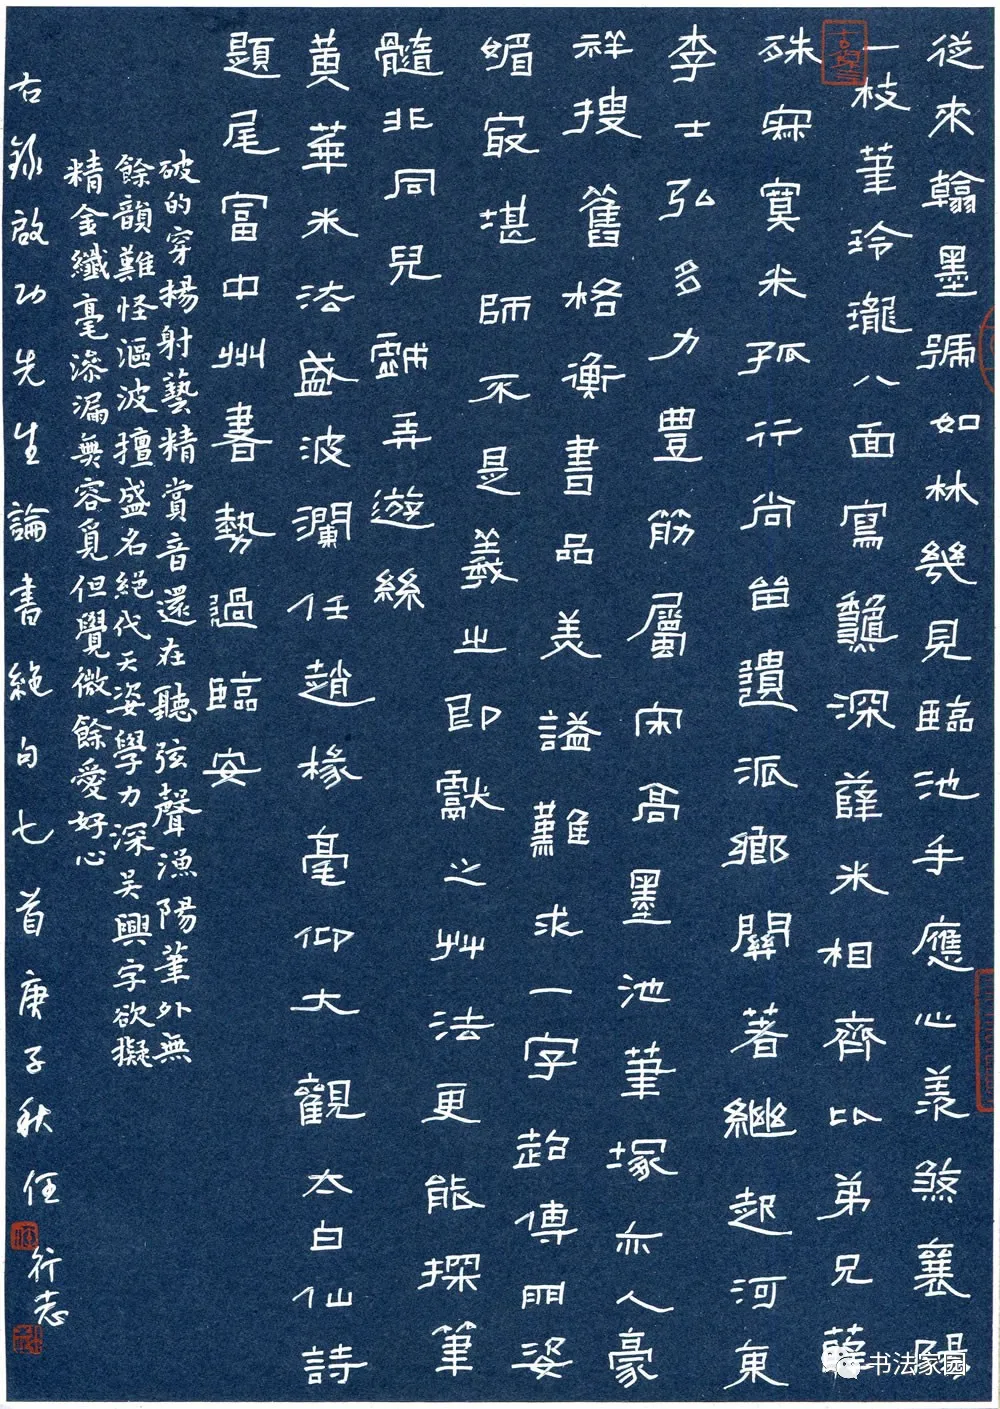 從來翰墨號如林幾見臨池手應心羡煞襄陽
一枝筆玲瓏八面寫龢深薛米相齊比弟兄薛
殊寂寞米孤行尚留遺派鄉關著繼起河東
李士弘多力豐筋屬宋高墨池筆塚亦人豪
祥搜舊格衡書品美謚難求一字超傳明姿
媚最堪師不是羲之即獻之艸法更能探筆
髓非同兒戲弄遊絲
黃華米法盛波瀾任趙椽毫仰大觀太白仙詩
題尾富中州書勢過臨安
破的穿楊射藝精賞音還在聽弦聲漁陽筆外無
餘韻難怪漚波擅盛名絕代天姿學力深吳興字欲擬
精金纖毫滲漏無容覓但覺微餘愛好心
右錄啟功先生論書絕句七首庚子秋任
行志
书法家园